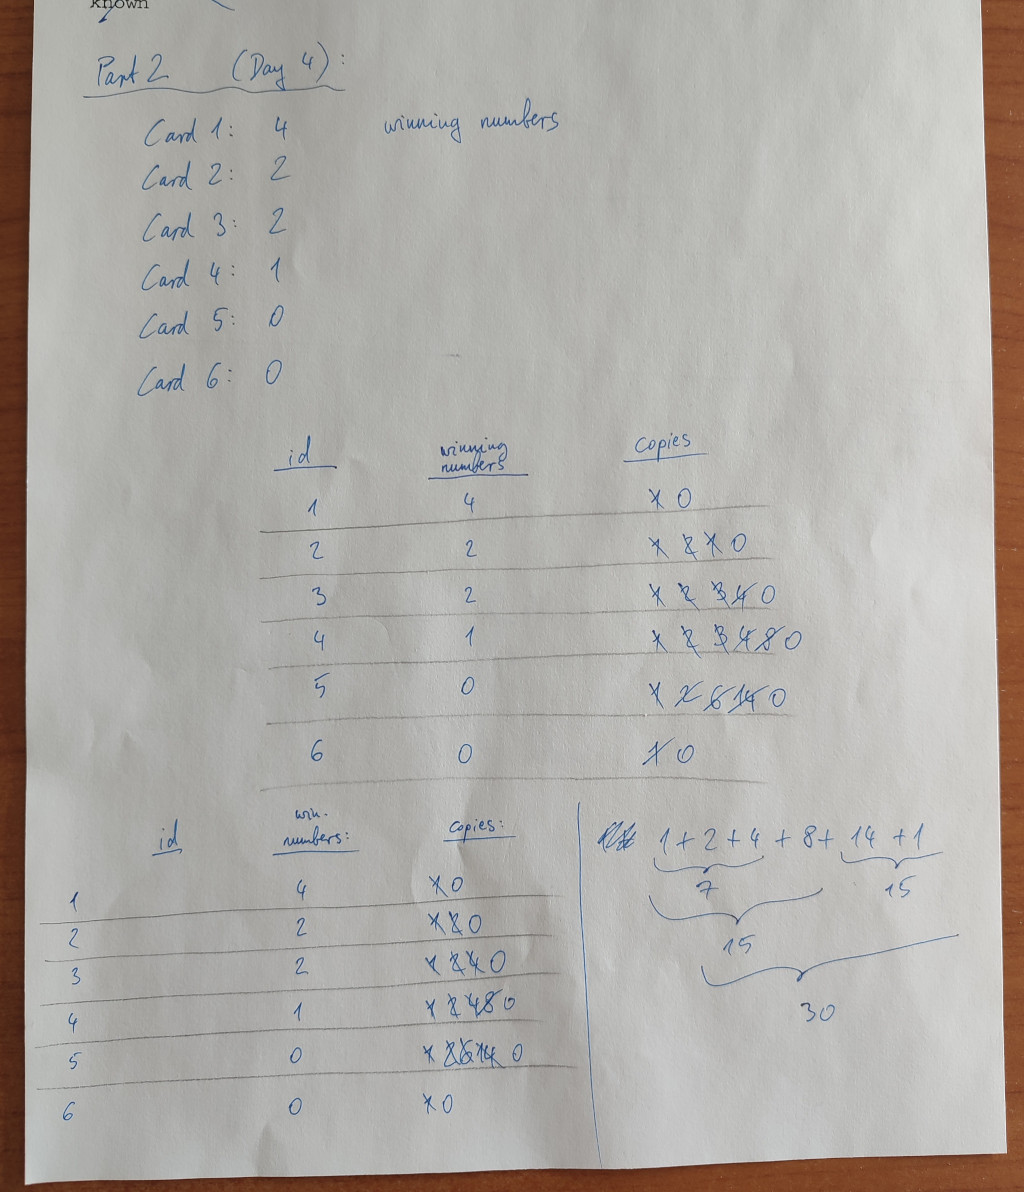 known
Part 2 (Day 4):
Card 1: 4 winning numbers
Card 2: 2
Card 3: 2
Card 4: 1
Card 5: 0
Card 6: 0
id winning numbers copies
1 4 1 0
2 2 1 2 1 0
3 2 1 2 3 4 0
4 1 1 2 3 4 8 0
5 0 1 2 6 14 0
6 0 1 0
id win. numbers: copies:
1 4 1 0
2 2 1 2 0
3 2 1 2 4 0
4 1 1 2 4 8 0
5 0 1 2 6 14 0
6 0 1 0
1 + 2 + 4 + 8 + 14 + 1
7 15
15
30